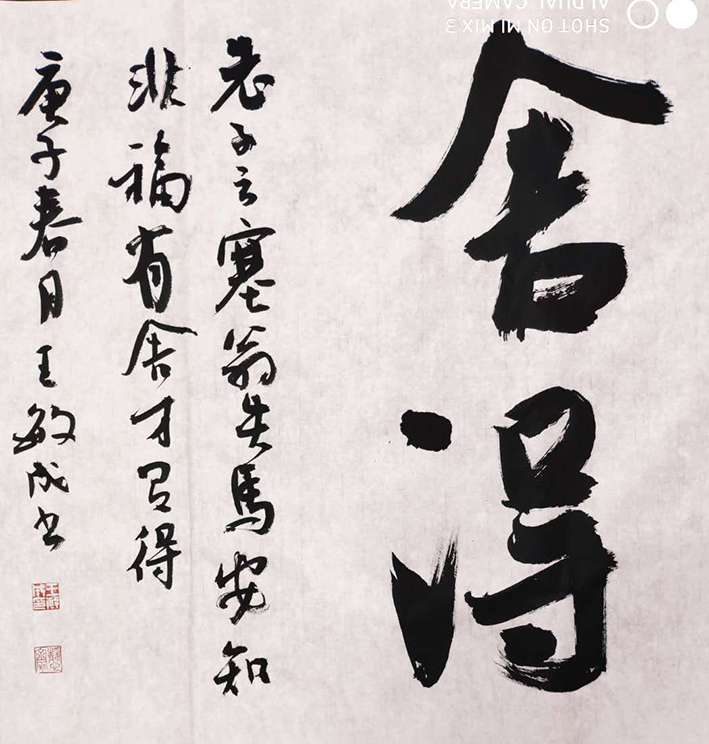 舍得
老子云塞翁失馬安知
非福有舍才有得
庚子春月王敏成书
SHOT ON MI MIX3
AI DUAL CAMERA